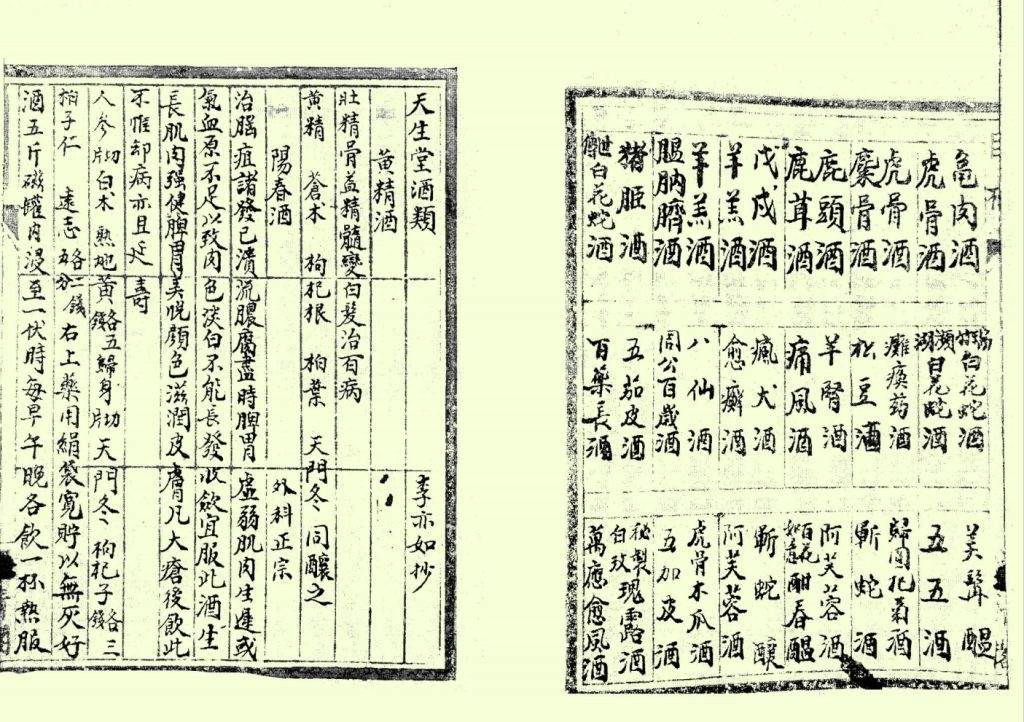 龜肉酒
虎骨酒
虎骨酒
麋骨酒
鹿頭酒
鹿茸酒
戊戌酒
羊羔酒
羊羔酒
膃肭臍酒
豬酒
世傳白花蛇酒
瑞竹白花蛇酒
瀕湖白花蛇酒
癱瘓药酒
松豆酒
羊腎酒
痛風酒
瘋犬酒
愈癬酒
八仙酒
周公百歲酒
五茄皮酒
百藥長酒
美髯醞
五五酒
歸圓杞菊酒
蘄蛇酒
阿芙蓉酒
百花如意酣春醞
蘄蛇釀
阿芙蓉酒
虎骨木瓜酒
五加皮酒
秘製白玫瑰露酒
萬應愈風酒
天生堂酒類 李亦如抄
黃精酒
壯精骨益精髓變白髮治百病
黃精 蒼术 枸杞根 柏葉 天門冬 同釀之
陽春酒 外科正宗
治腦疽諸發已潰流膿腐盡時脾胃虛弱肌肉生遲或
氣血原不足以致肉色淡白不能長發收斂宜服此酒生
長肌肉强健脾胃美悅顏色滋潤皮膚凡大瘡後飲此
不惟却病亦且延壽
人參切片白术熟地黃各五錢歸身切片天門冬枸杞子各三錢
柏子仁 遠志各二錢五分右上藥用絹袋寬貯以無灰好
酒五斤磁罐內浸至一伏時每早午晚各飲一杯熱服